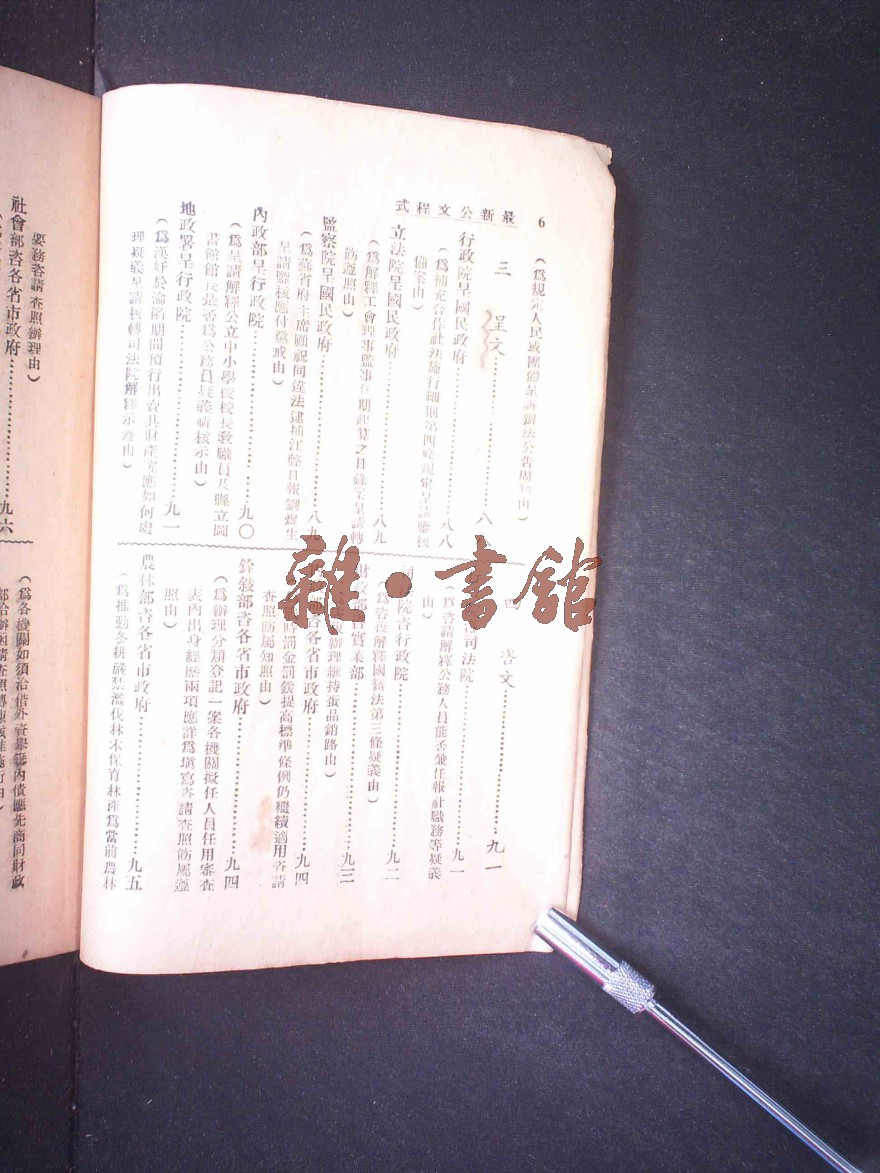 6
最新公文程式
（爲規定人民或團體呈訴辦法公告周知由）
三 呈文
行政院呈國民政府 八八
（爲補充合作社法施行細則第四條規定呈請鑒核
備案由）
立法院呈國民政府 八九
（爲解釋工會理事監事任期起算之日錄案呈請轉
飭遵照由）
監察院呈國民政府 八九
（爲蘇省府主席顧祝同違法逮捕江聲日報劉煜生
呈請鑒核應付懲戒由）
內政部呈行政院 九〇
（爲呈請解釋公立中小學校校長敎職員及縣立圖
書館館長是否爲公務員疑義祈核示由）
地政署呈行政院 九一
（爲漢奸於淪陷期間預行出賣其財產究應如何處
理疑義呈請核轉司法院解釋示遵由）
四 咨文 九一
咨司法院 九一
（爲咨請解釋公務人員能否兼任報社職務等疑義
由）
院咨行政院 九二
（爲咨復解釋國籍法第三條疑義由）
財政部咨實業部 九三
辦理維持蛋品銷路由）
咨各省市政府 九四
罰金罰鍰提高標準條例仍繼續適用咨請
查照飭屬知照由）
銓敍部咨各省市政府 九四
（爲辦理分類登記一案各機關擬任人員任用審查
表內出身經歷兩項應詳爲塡寫咨請查照飭屬遵
照由）
農林部咨各省市政府 九五
（爲推動冬耕嚴禁濫伐林木保育林產爲當前農林
要務咨請查照辦理由）
社會部咨各省市政府 九六
（爲各機關如須洽借外資舉辦內債應先商同財政
雜·書館